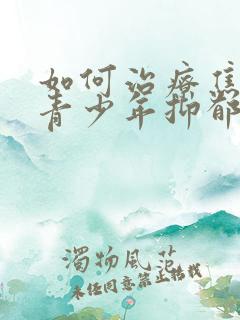 如何治疗
青少年抑郁
濁物風范
未经同意禁止转载